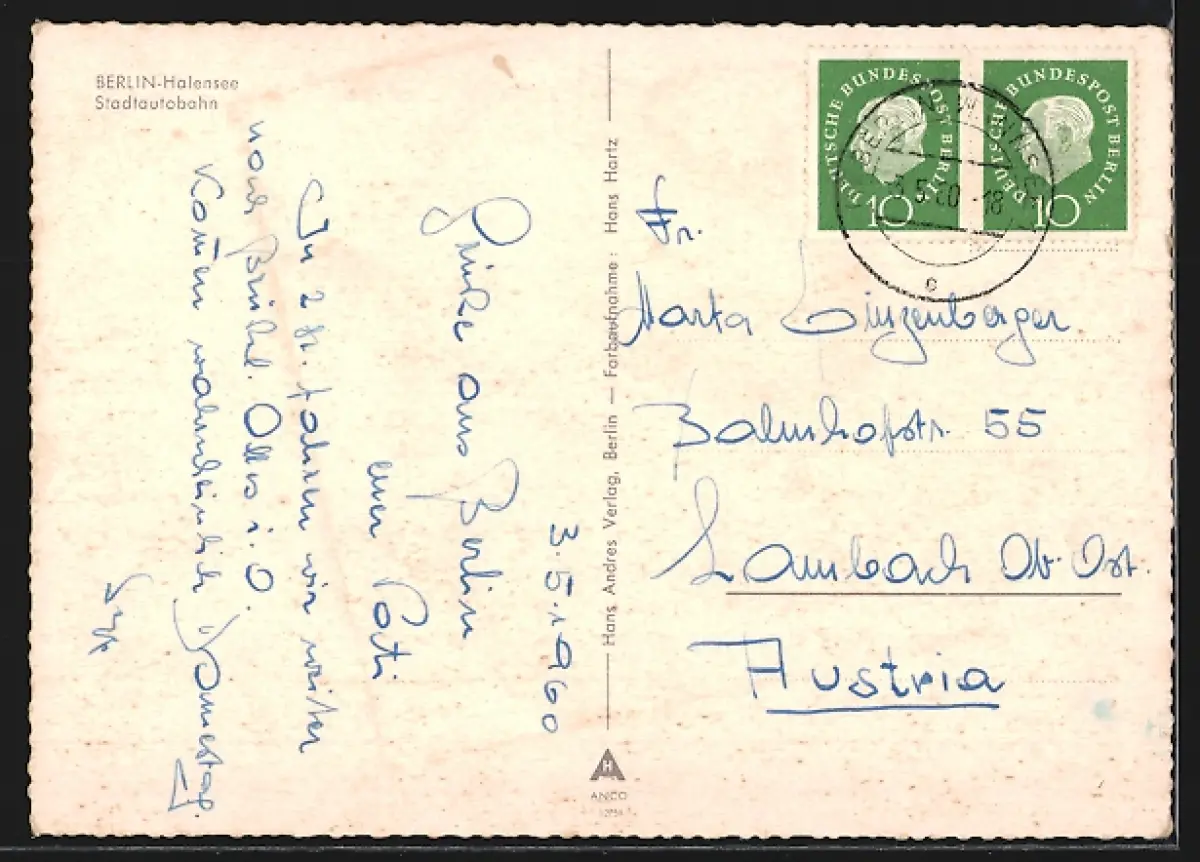 BERLIN-Halensee
Stadtautobahn
3.5.1960
Grüße aus Berlin
euer Vati
In 2 St. fahren wir weiter
nach Brüssel. Alles i. O.
Komen wahrscheinlich Donnerstag.
Hans Andres Verlag, Berlin — Farbaufnahme: Hans Hartz
ANCO
DEUTSCHE BUNDESPOST BERLIN
10
DEUTSCHE BUNDESPOST BERLIN
10
BERLIN
5.60-18
c
Fr.
Marta Linzenberger
Bahnhofstr. 55
Lambach Ob. Öst.
Austria